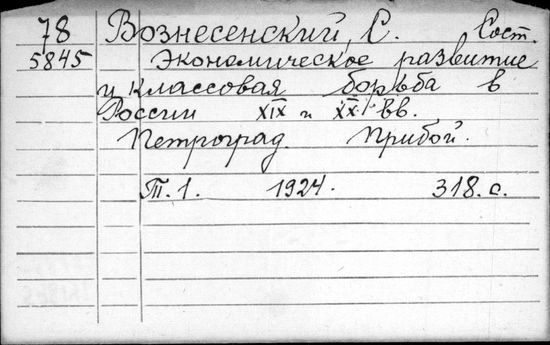 78 Вознесенский, С. Сост.
5845 Экономическое развитие
и классовая борьба в
России XIX и XX вв.
Петроград. Прибой.
Т. 1. 1924. 318. с.